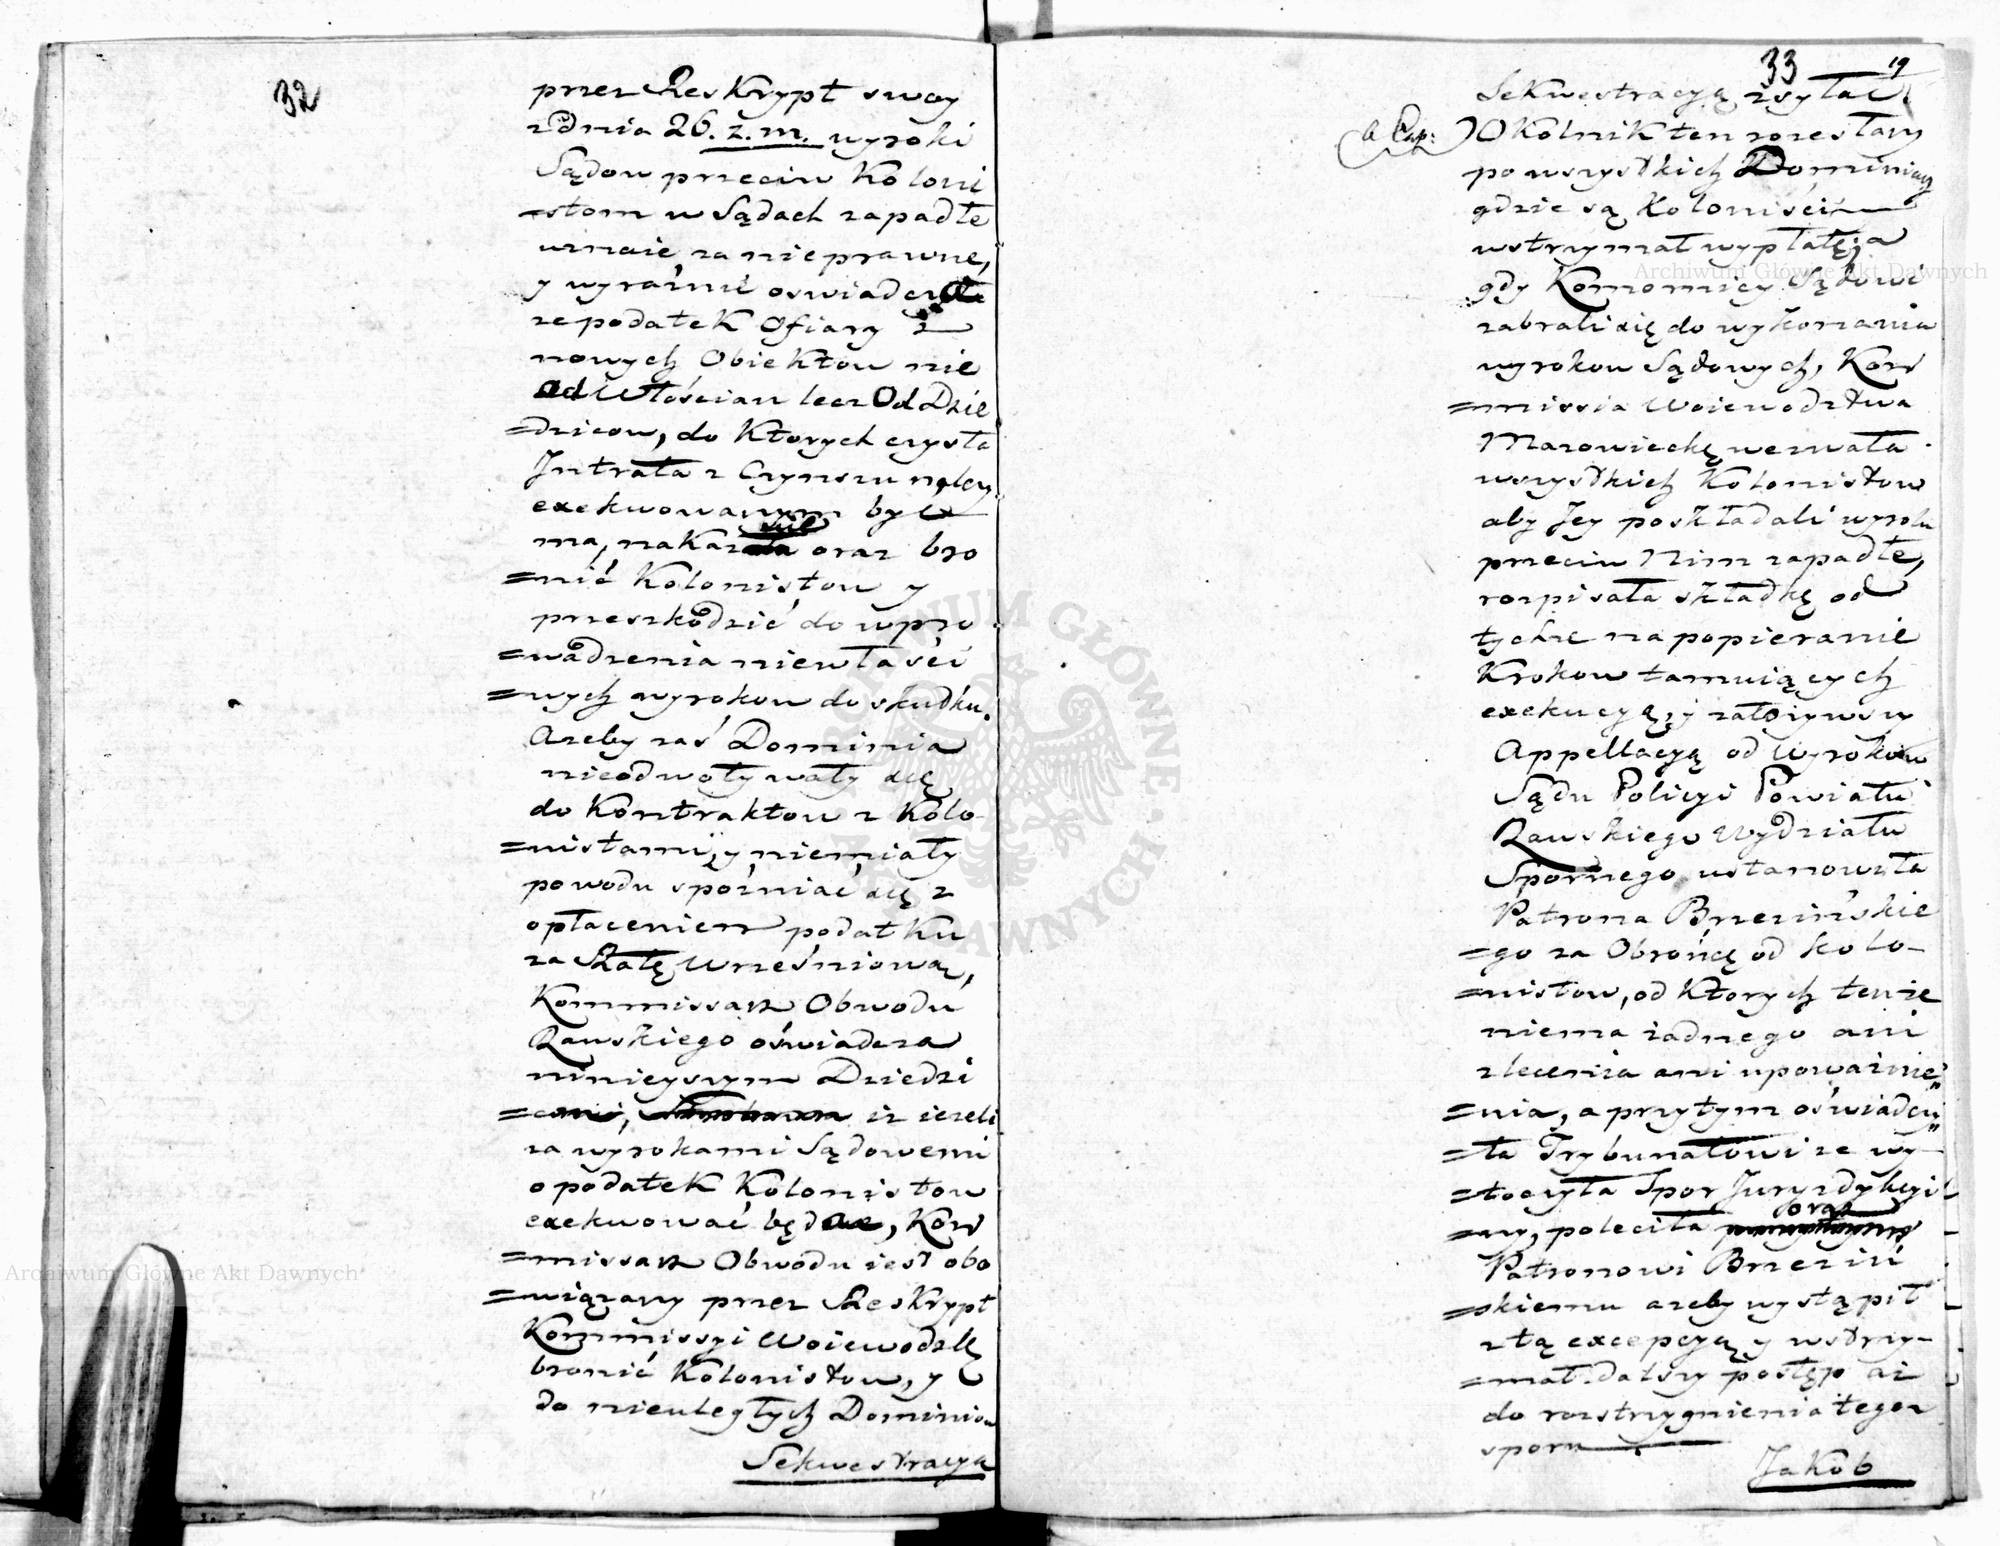 32
przez Reskrypt swoy
z dnia 26. z. m. wyroki
Sądow przeciw Koloni
=stom w Sądach zapadłe
uznaie za nieprawne,
y wyraźnie oswiadcza
ze podatek Ofiary z
nowych Obiektow nie
od Włościan lecz Od Dzie
=dzicow, do Ktorych czysta
Intrata z Czynszu należy
exekwowanym być
ma, nakazuie oraz bro
=nić Kolonistow y
przeszkodzić do wpro
=wadzenia niewłaści
=wych wyrokow do skutku.
Azeby zaś Dominia
nieodwoływały się
do Kontraktow z Kolo-
=nistami, y niemiały
powodu spóźniać się z
opłaceniem podatku
za Ratę Wrześniową,
Kommissarz Obwodu
Rawskiego oświadcza
ninieyszym Dziedzi
=com, iz iezeli
za wyrokami Sądowemi
o podatek Kolonistow
exekwować będą, Kom
=missarz Obwodu iest obo
=wiązany przez Reskrypt
Kommissyi Woiewodzk
bronić Kolonistow, y
do nieuległych Dominiow
Sekwestracya
33 19
Sekwestracyą zsyłać
a Cap: Okolnik ten rozesłany
po wszystkich Dominiach
gdzie są Koloniści
wstrzymał wypłatę; a
gdy Komornicy Sądowi
zabrali się do wykonania
wyrokow Sądowych, Kom
=missia Woiewodztwa
Mazowieckę wezwała
wszystkich Kolonistow
aby Jey poskładali wyroki
przeciw Nim zapadłe,
rozpisała składkę od
tychze na popieranie
Krokow tamuiących
exekucyą, y założywszy
Appellacyą od Wyrokow
Sądu Policyi Powiatu
Rawskiego Wydziału
Spornego ustanowiła
Patrona Brzezińskie
=go za Obrońcę od Kolo-
=nistow, od Ktorych tenze
niema żadnego ani
zlecenia ani upoważnie
=nia, a przytym oświadczy
=ła Trybunałowi ze wy-
=toczyła Spor Juryzdykcyi
=ny, poleciła oraz
Patronowi Brzeziń
=skiemu azeby wystąpił
z tą excepcyą y wstrzy-
=mał dalszy postęp aż
do rozstrzygnienia tegoz
sporu
Jakob
Archiwum Główne Akt Dawnych
Archiwum Główne Akt Dawnych
ARCHIWUM GŁÓWNE AKT DAWNYCH